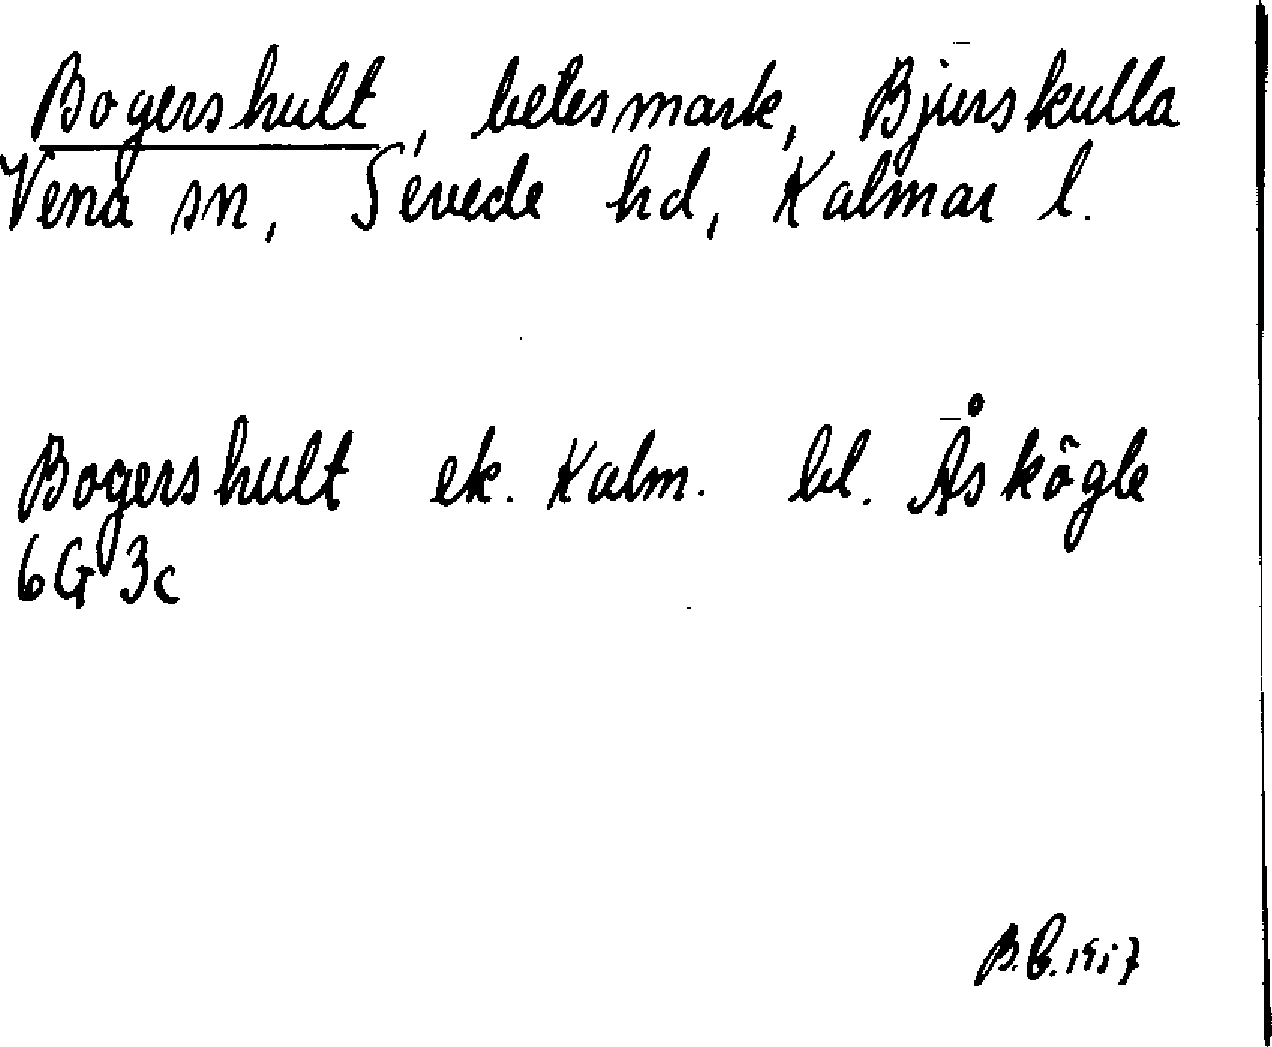 Bogershult, betesmark, Bjurskulla
Vena sn, Sevede hd, Kalmar l.
Bogershult ek. Kalm. bl. Åskögle
6G 3c